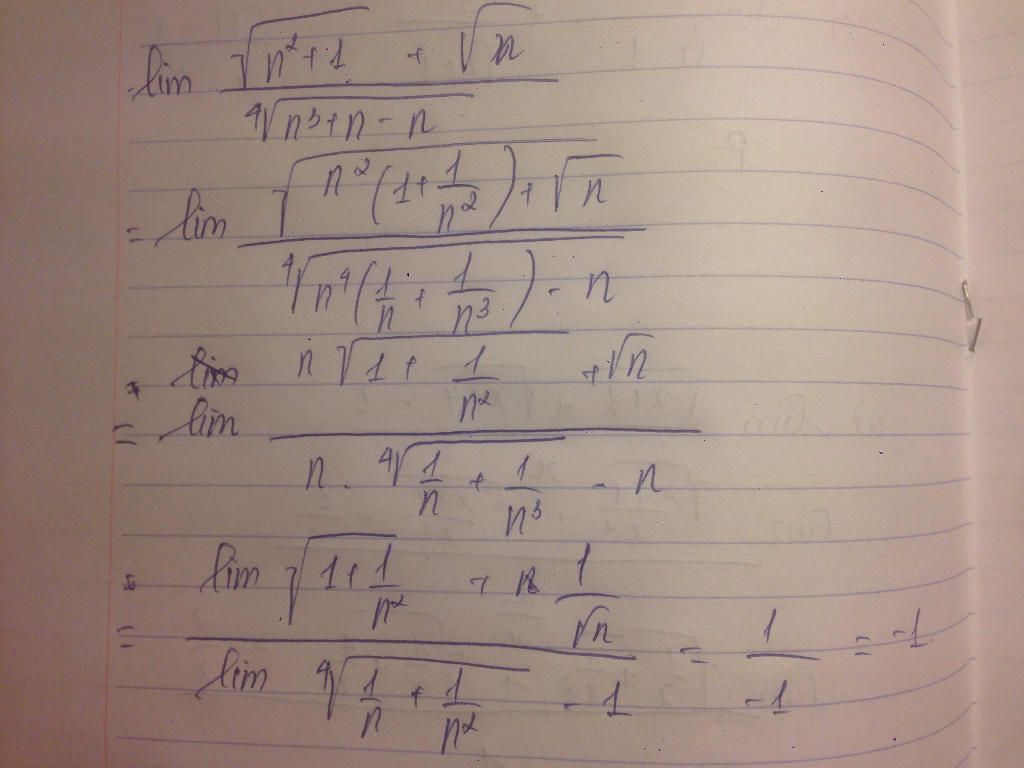 lim (√(n²+1) + √n) / (⁴√(n³+n) - n)
= lim (√(n²(1+1/n²)) + √n) / (⁴√(n⁴(1/n + 1/n³)) - n)
= lim (n√(1 + 1/n²) + √n) / (n . ⁴√(1/n + 1/n³) - n)
= (lim √(1+1/n²) + 1/√n) / (lim ⁴√(1/n + 1/n²) - 1) = 1/-1 = -1